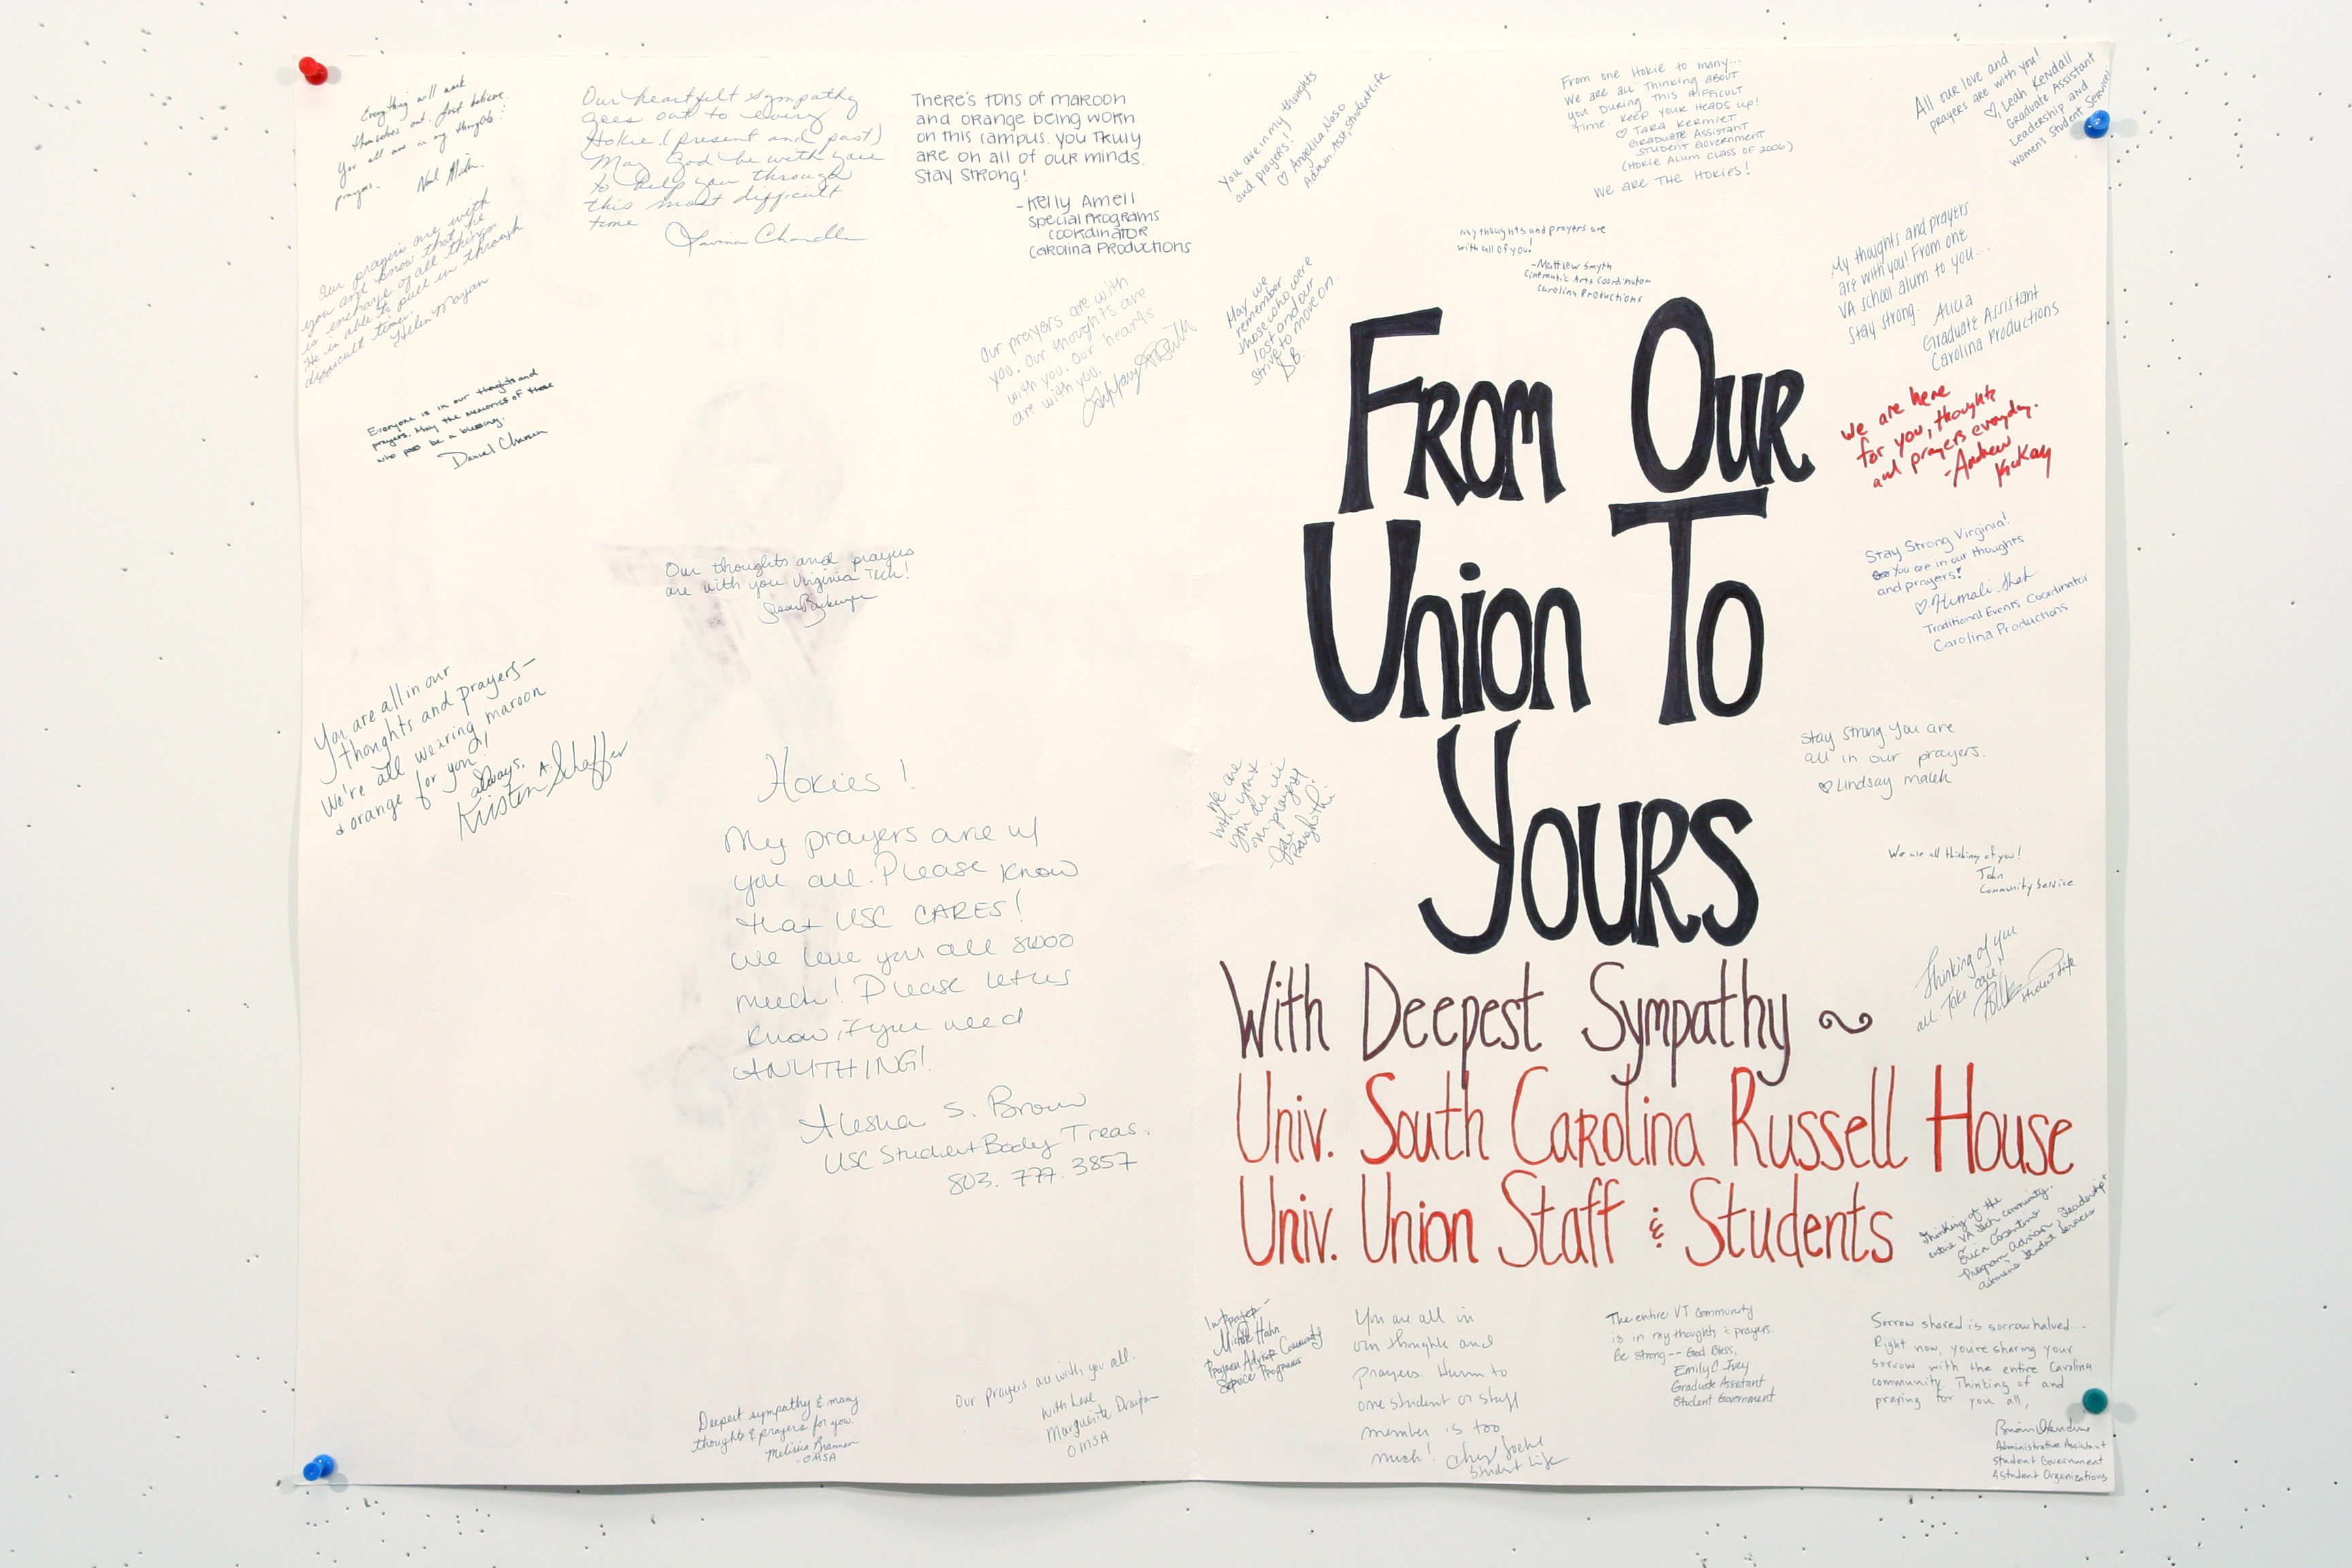 Everything will work
themselves out. Just believe.
You all are in my thoughts
prayers.
Our prayers are with
you and know that he
is in charge of all things
He is able to pull us through
difficult times.
Helen Mayan
Everyone is in our thoughts and
prayers. May the memories of those
who pass be a blessing.
Our heartfelt sympathy
goes out to every
Hokie! (present and past)
May God be with you
to help you through
this most difficult
time.
There's tons of maroon
and orange being worn
on this campus. You truly
are on all of our minds.
Stay strong!
-Kelly Amell
Special Programs
Coordinator
Carolina Productions
Our prayers are with
you. Our thoughts are
with you. Our hearts
are with you.
Our thoughts and prayers
are with you Virginia Tech!
You are all in our
thoughts and prayers-
We're all wearing maroon
+ orange for you!
Always,
Kristen A. Schaffer
Hokies!
My prayers are w/
you all. Please know
that USC CARES!
We love you all sooo
much! Please let us
know if you need
ANYTHING!
Alesha S. Brown
USC Student Body Treas.
803. 777. 3857
Deepest sympathy & many
thoughts & prayers for you.
Melissa Brannen
-OMSA
Our prayers are with you all.
With Love
Marguerite Drayton
OMSA
You are in my thoughts
and prayers!
♡ Angelica Naso
Admin. Asst, Student Life
From one Hokie to many...
We are all thinking about
you during this difficult
time. Keep your heads up!
♡ Tara Kermiet
Graduate Assistant
Student Government
(Hokie Alum Class of 2006)
We are the Hokies!
All our love and
prayers are with you!
♡ Leah Kendall
Graduate Assistant
Leadership and
Women's Student Services
May we
remember
those who were
lost and our
strive to move on.
S.B.
My thoughts and prayers are
with all of you!
-Matthew Smyth
Cinematic Arts Coordinator
Carolina Productions
My thoughts and prayers
are with you! From one
VA school alum to you...
Stay strong.
Alicia
Graduate Assistant
Carolina Productions
We are here
for you, thoughts
and prayers everyday.
-Andrew
McKay
From Our
Union To
Yours
Stay Strong Virginia!
You are in our thoughts
and prayers!
♡ Himali Shah
Traditional Events Coordinator
Carolina Productions
Stay strong. You are
all in our prayers.
♡ Lindsay Malek
We are
with you &
you are in
our prayers!
We are all thinking of you!
John
Community Service
Thinking of you
all. Take care,
Student Life
With Deepest Sympathy ~
Univ. South Carolina Russell House
Univ. Union Staff & Students
Thinking of the
entire VA Tech community.
Erica Cosentino
Program Advisor Leadership +
Women's Student Services
In Prayer-
Michele Hahn
Program Advisor Community
Service Programs
You are all in
our thoughts and
prayers. Harm to
one student or staff
member is too
much!
Student Life
The entire VT community
is in my thoughts & prayers.
Be strong-- God Bless,
Emily C Ivey
Graduate Assistant
Student Government
Sorrow shared is sorrow halved...
Right now, you're sharing your
sorrow with the entire Carolina
community. Thinking of and
praying for you all,
Administrative Assistant
Student Government
& Student Organizations